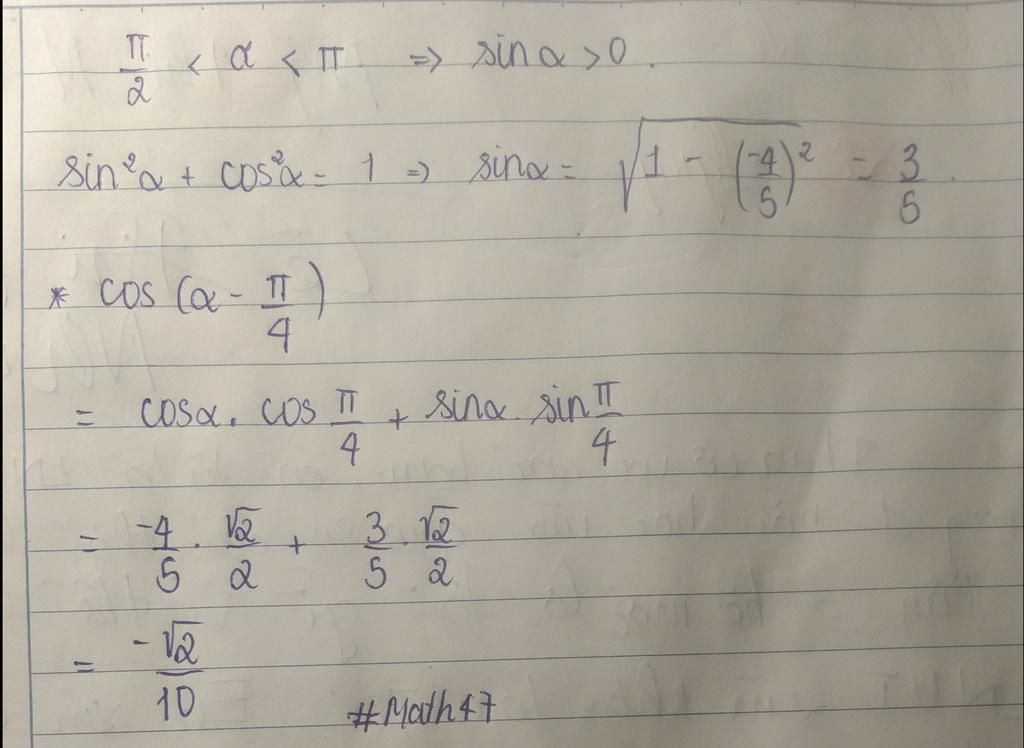 π/2 < α < π ⇒ sinα > 0.
sin²α + cos²α = 1 ⇒ sinα = √(1 - (-4/5)²) = 3/5.
* cos (α - π/4)
= cosα . cos π/4 + sinα sin π/4
= -4/5 . √2/2 + 3/5 . √2/2
= -√2/10
#Math47